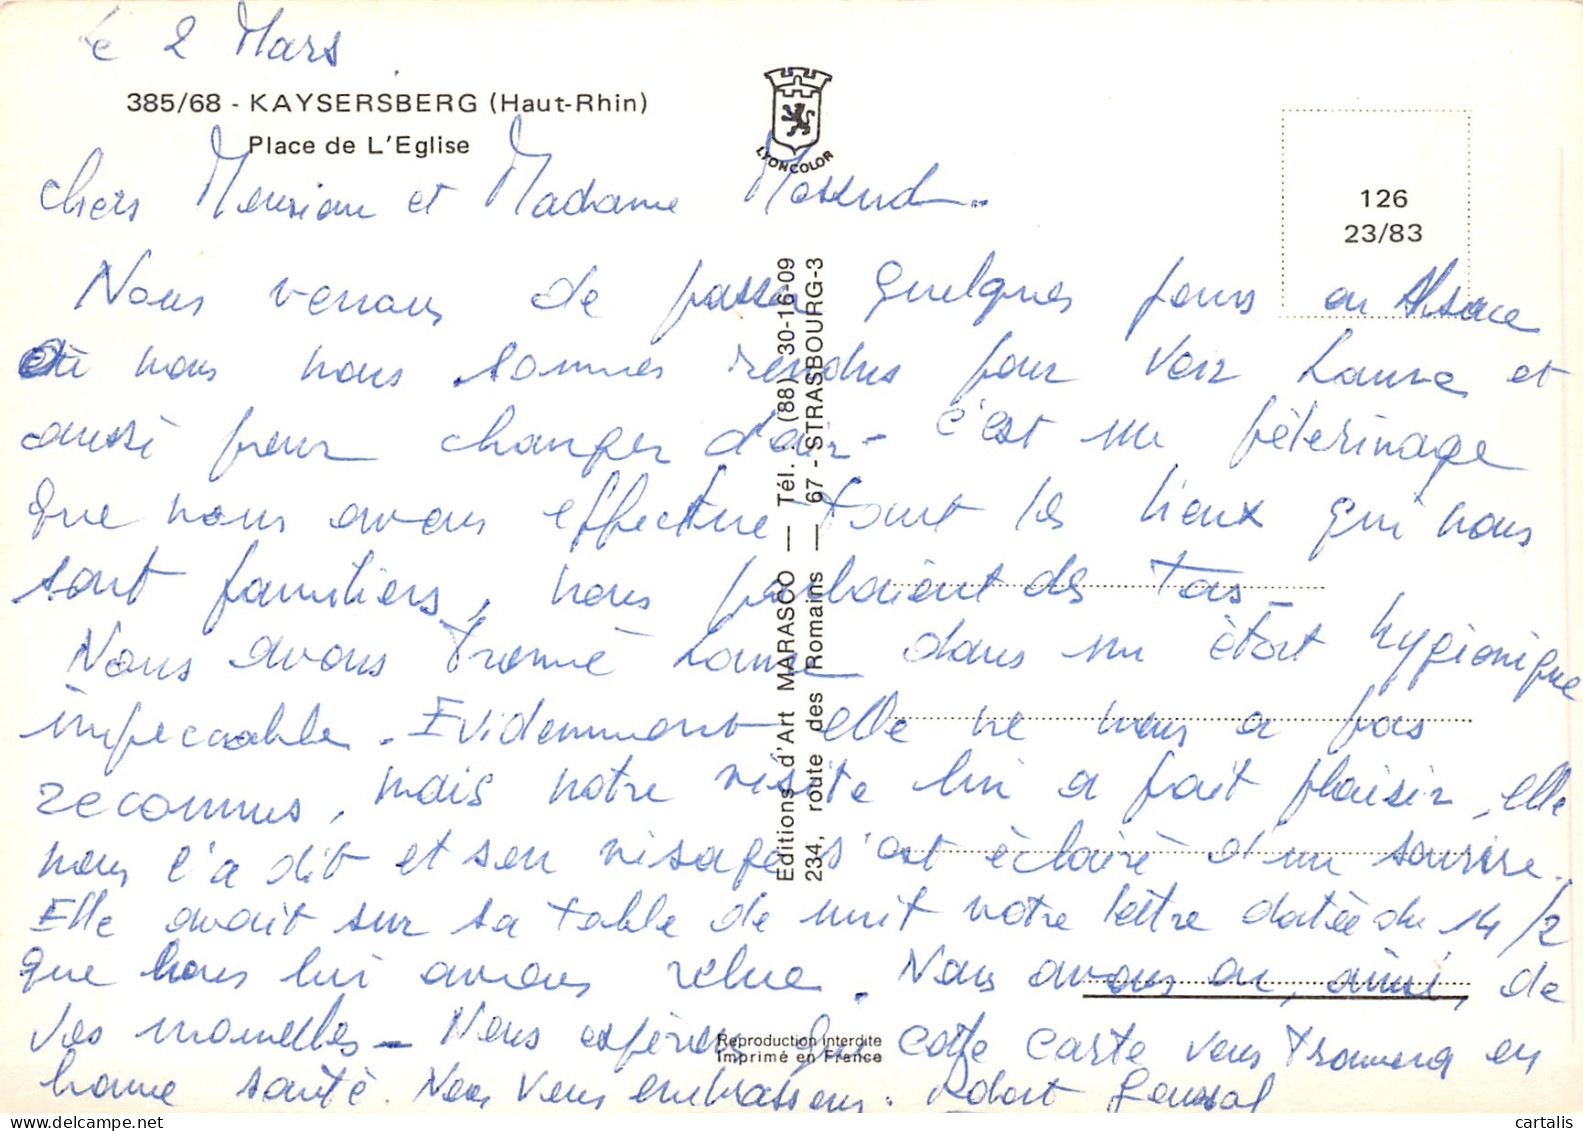 Le 2 Mars
385/68 - KAYSERSBERG (Haut-Rhin)
Place de L'Eglise
LYONCOLOR
126
23/83
Chers Monsieur et Madame
Nous venons de passer quelques jours en Alsace
où nous nous sommes rendus pour voir Laure et
aussi pour changer d'air - C'est un pèlerinage
que nous avons effectué tant les lieux qui nous
sont familiers, nous parlaient des tas -
Nous avons trouvé Laure dans un état hygiènique
impeccable. Evidemment elle ne nous a pas
reconnus, mais notre visite lui a fait plaisir, elle
nous l'a dit et son visage s'est éclairé d'un sourire.
Elle avait sur sa table de nuit votre lettre datée du 14/2
que nous lui avons relue. Nous avons eu, ainsi, de
vos nouvelles - Nous espérons que cette carte vous trouvera en
bonne santé. Nous vous embrassons. Robert
Editions d'Art MARASCO — Tél. : (88) 30-16-09
234, route des Romains — 67 - STRASBOURG-3
Reproduction interdite
Imprimé en France
cartalis